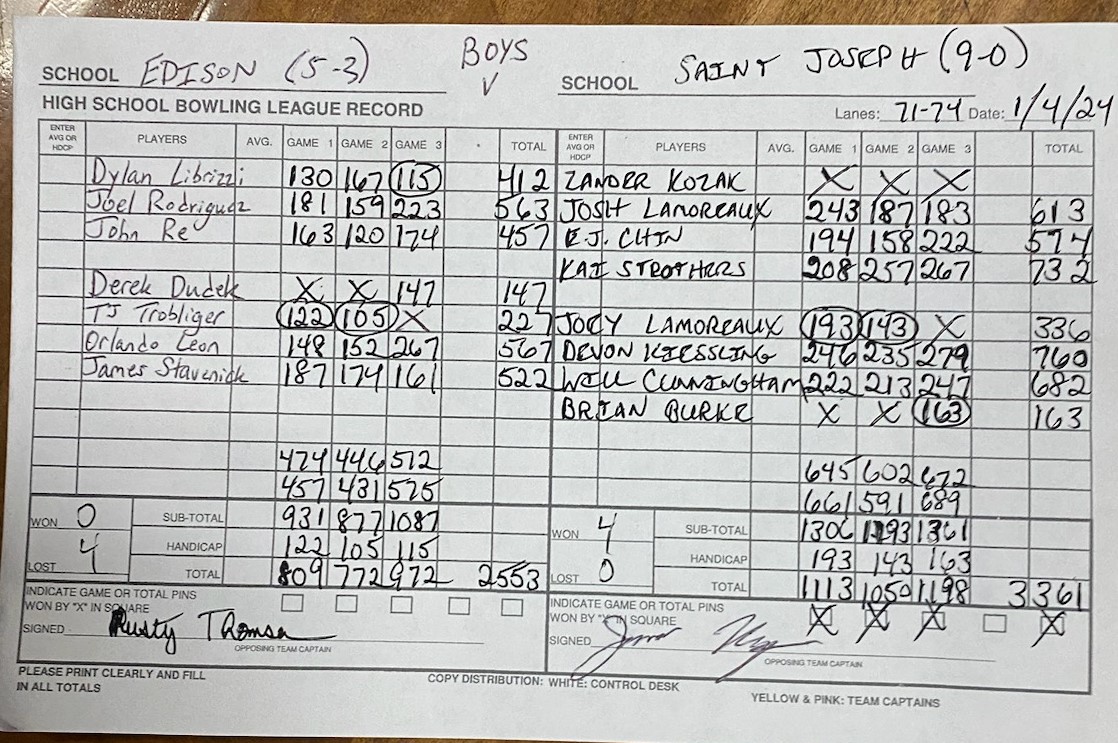 BOYS
V
SCHOOL EDISON (5-3)
SCHOOL SAINT JOSEPH (9-0)
HIGH SCHOOL BOWLING LEAGUE RECORD
Lanes: 71-74 Date: 1/4/24
ENTER AVG OR HDCP PLAYERS AVG. GAME 1 GAME 2 GAME 3 TOTAL ENTER AVG OR HDCP PLAYERS AVG. GAME 1 GAME 2 GAME 3 TOTAL
Dylan Librizzi 130 167 115 412 ZANDER KOZAK X X X
Joel Rodriguez 181 159 223 563 JOSH LAMOREAUX 243 187 183 613
John Re 163 120 174 457 E.J. CHIN 194 158 222 574
KAI STROTHERS 208 257 267 732
Derek Dudek X X 147 147
TJ Trobliger 122 105 X 227 JOEY LAMOREAUX 193 143 X 336
Orlando Leon 148 152 267 567 DEVON KIESSLING 246 235 279 760
James Stavenick 187 174 161 522 WILL CUNNINGHAM 222 213 247 682
BRIAN BURKE X X 163 163
474 446 512 645 602 672
457 431 575 661 591 689
WON 0 SUB-TOTAL 931 877 1087 WON 4 SUB-TOTAL 1306 1193 1361
HANDICAP 122 105 115 HANDICAP 193 143 163
LOST 4 TOTAL 809 772 972 2553 LOST 0 TOTAL 1113 1050 1198 3361
INDICATE GAME OR TOTAL PINS
WON BY "X" IN SQUARE
SIGNED Rusty Thomsen
OPPOSING TEAM CAPTAIN
INDICATE GAME OR TOTAL PINS
WON BY "X" IN SQUARE X X X X
SIGNED
OPPOSING TEAM CAPTAIN
PLEASE PRINT CLEARLY AND FILL
IN ALL TOTALS
COPY DISTRIBUTION: WHITE: CONTROL DESK
YELLOW & PINK: TEAM CAPTAINS